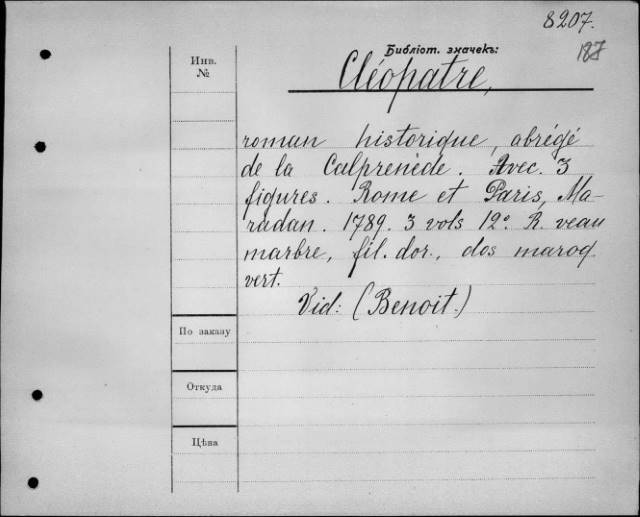 8207.
187
Инв.
№
Библіот. значекъ:
Cléopatre,
roman historique, abrégé
de la Calprenède. Avec. 3
figures. Rome et Paris, Ma-
radan. 1789. 3 vols 12º. R. veau
marbre, fil. dor., dos maroq
vert.
Vid: (Benoit.)
По заказу
Откуда
Цѣна